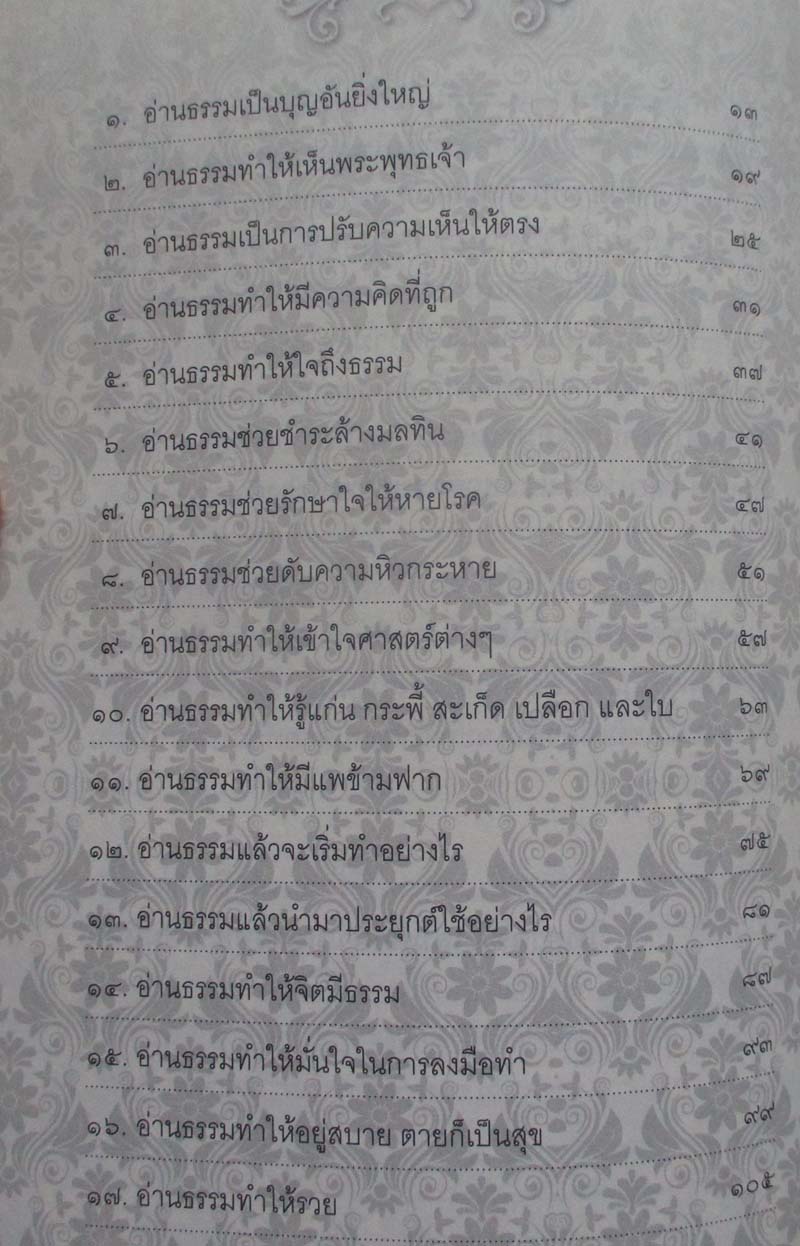 ๑. อ่านธรรมเป็นบุญอันยิ่งใหญ่ ๑๓
๒. อ่านธรรมทำให้เห็นพระพุทธเจ้า ๑๙
๓. อ่านธรรมเป็นการปรับความเห็นให้ตรง ๒๕
๔. อ่านธรรมทำให้มีความคิดที่ถูก ๓๑
๕. อ่านธรรมทำให้ใจถึงธรรม ๓๗
๖. อ่านธรรมช่วยชำระล้างมลทิน ๔๑
๗. อ่านธรรมช่วยรักษาใจให้หายโรค ๔๗
๘. อ่านธรรมช่วยดับความหิวกระหาย ๕๑
๙. อ่านธรรมทำให้เข้าใจศาสตร์ต่างๆ ๕๗
๑๐. อ่านธรรมทำให้รู้แก่น กระพี้ สะเก็ด เปลือก และใบ ๖๓
๑๑. อ่านธรรมทำให้มีแพข้ามฟาก ๖๙
๑๒. อ่านธรรมแล้วจะเริ่มทำอย่างไร ๗๕
๑๓. อ่านธรรมแล้วนำมาประยุกต์ใช้อย่างไร ๘๑
๑๔. อ่านธรรมทำให้จิตมีธรรม ๘๗
๑๕. อ่านธรรมทำให้มั่นใจในการลงมือทำ ๙๓
๑๖. อ่านธรรมทำให้อยู่สบาย ตายก็เป็นสุข ๙๙
๑๗. อ่านธรรมทำให้รวย ๑๐๕